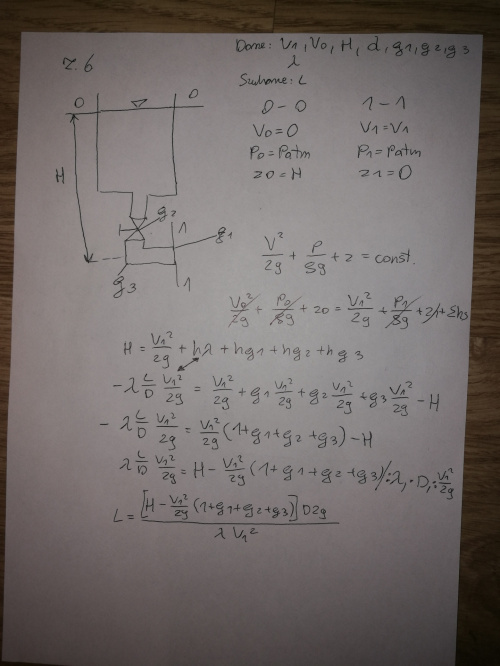 Z.6
Dane: V1, V0, H, d, g1, g2, g3
λ
Szukane: L
0 0
H
g2
1
g1
g3
1
0-0 1-1
V0=0 V1=V1
P0=Patm P1=Patm
z0=H z1=0
V²/2g + P/ρg + z = const.
V0²/2g + P0/ρg + z0 = V1²/2g + P1/ρg + z1 + Σhs
H = V1²/2g + hλ + hg1 + hg2 + hg3
-λ L/D V1²/2g = V1²/2g + g1 V1²/2g + g2 V1²/2g + g3 V1²/2g - H
- λ L/D V1²/2g = V1²/2g (1+g1+g2+g3) - H
λ L/D V1²/2g = H - V1²/2g (1+g1+g2+g3) /:λ, ·D, : V1²/2g
L = [H - V1²/2g (1+g1+g2+g3)] D2g / λ V1²